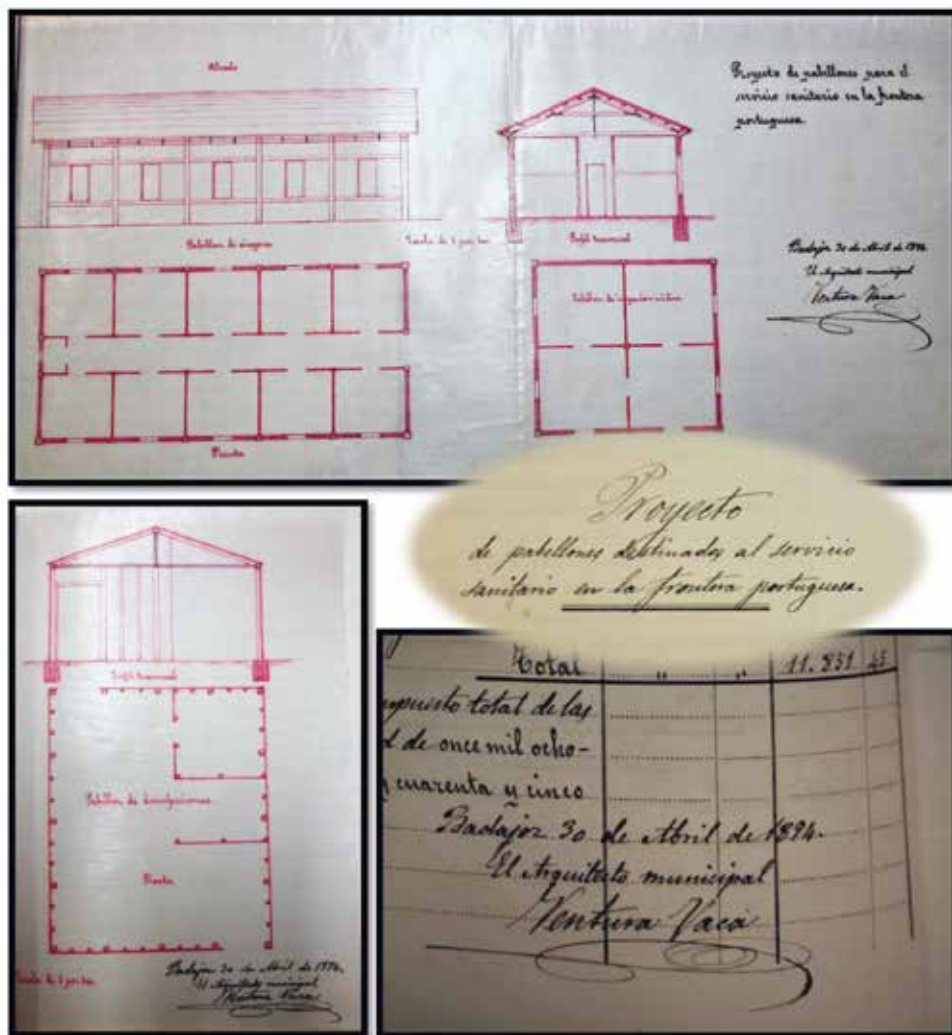 Alzado
Proyecto de pabellones para el
servicio sanitario en la frontera
portuguesa.
Pabellon de viageros
Escala de 1 por 100
Perfil trasversal
Pabellon de
Planta
Badajoz 30 de Abril de 1894
El Arquitecto municipal
Ventura Vaca
Proyecto
de pabellones destinados al servicio
sanitario en la frontera portuguesa.
Perfil trasversal
Pabellon de desinfecciones
Planta
Escala de 1 por 100
Badajoz 30 de Abril de 1894.
El Arquitecto municipal
Ventura Vaca
Total " " 11.851 45
puesto total de las
d de once mil ocho-
y cuarenta y cinco
Badajoz 30 de Abril de 1894.
El Arquitecto municipal
Ventura Vaca